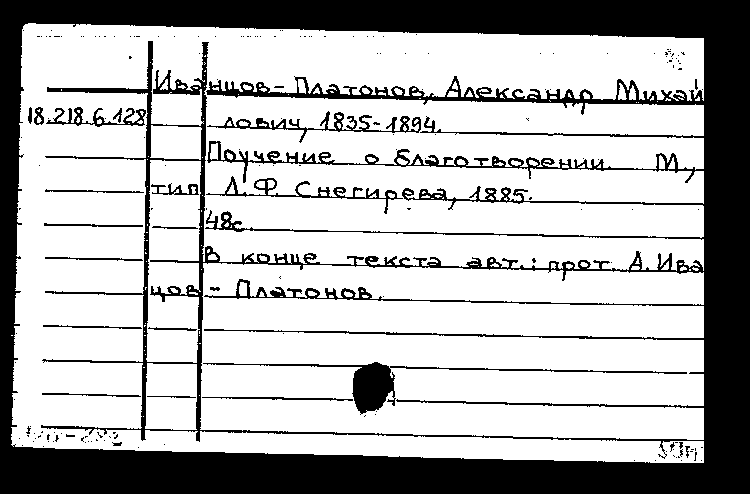 Иванцов-Платонов, Александр Михай
18.218.6.128 лович, 1835-1894.
Поучение о благотворении. М.,
тип Л.Ф. Снегирева, 1885.
48с.
В конце текста авт.: прот. А. Ива
цов - Платонов.